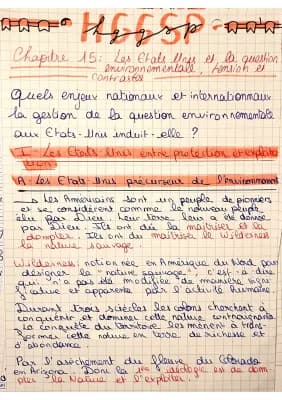 HGGSP
hggsp
Chapitre 15: Les Etats Unis et la question
environnementale, tension et
contrastes
Quels enjeux nationaux et internationaux
la gestion de la question environnementale
aux Etats-Unis induit-elle ?
I- Les Etats Unis entre protection et exploita
tion
A- Les Etats Unis précurseur de l'environnement
↳ Les Américains sont un peuple de pioniers
et se considèrent comme le nouveau peuple
élu par Dieu. Leur terre leur a été donné
par Dieu. Ils ont dû la maîtriser et la
dompter. Ils ont dû maîtriser le Wilderness
la nature sauvage
Wilderness: notion née en Amérique du Nord pour
désigner la "nature sauvage", c'est-à-dire
qui "n'a pas été modifiée de manière signi-
ficative et apparente par l'activité humaine.
Durant trois siècles les colons cherchent à
conquérir et dominer cette nature contraignante
la conquête du territoire les mènent à trans-
former cette nature en terre de richesse et
d'abondance.
Par l'asèchement du fleuve du Colorado
en Arizona. Donc la 1ère idéologie est de dom-
pter la Nature et l'exploiter.